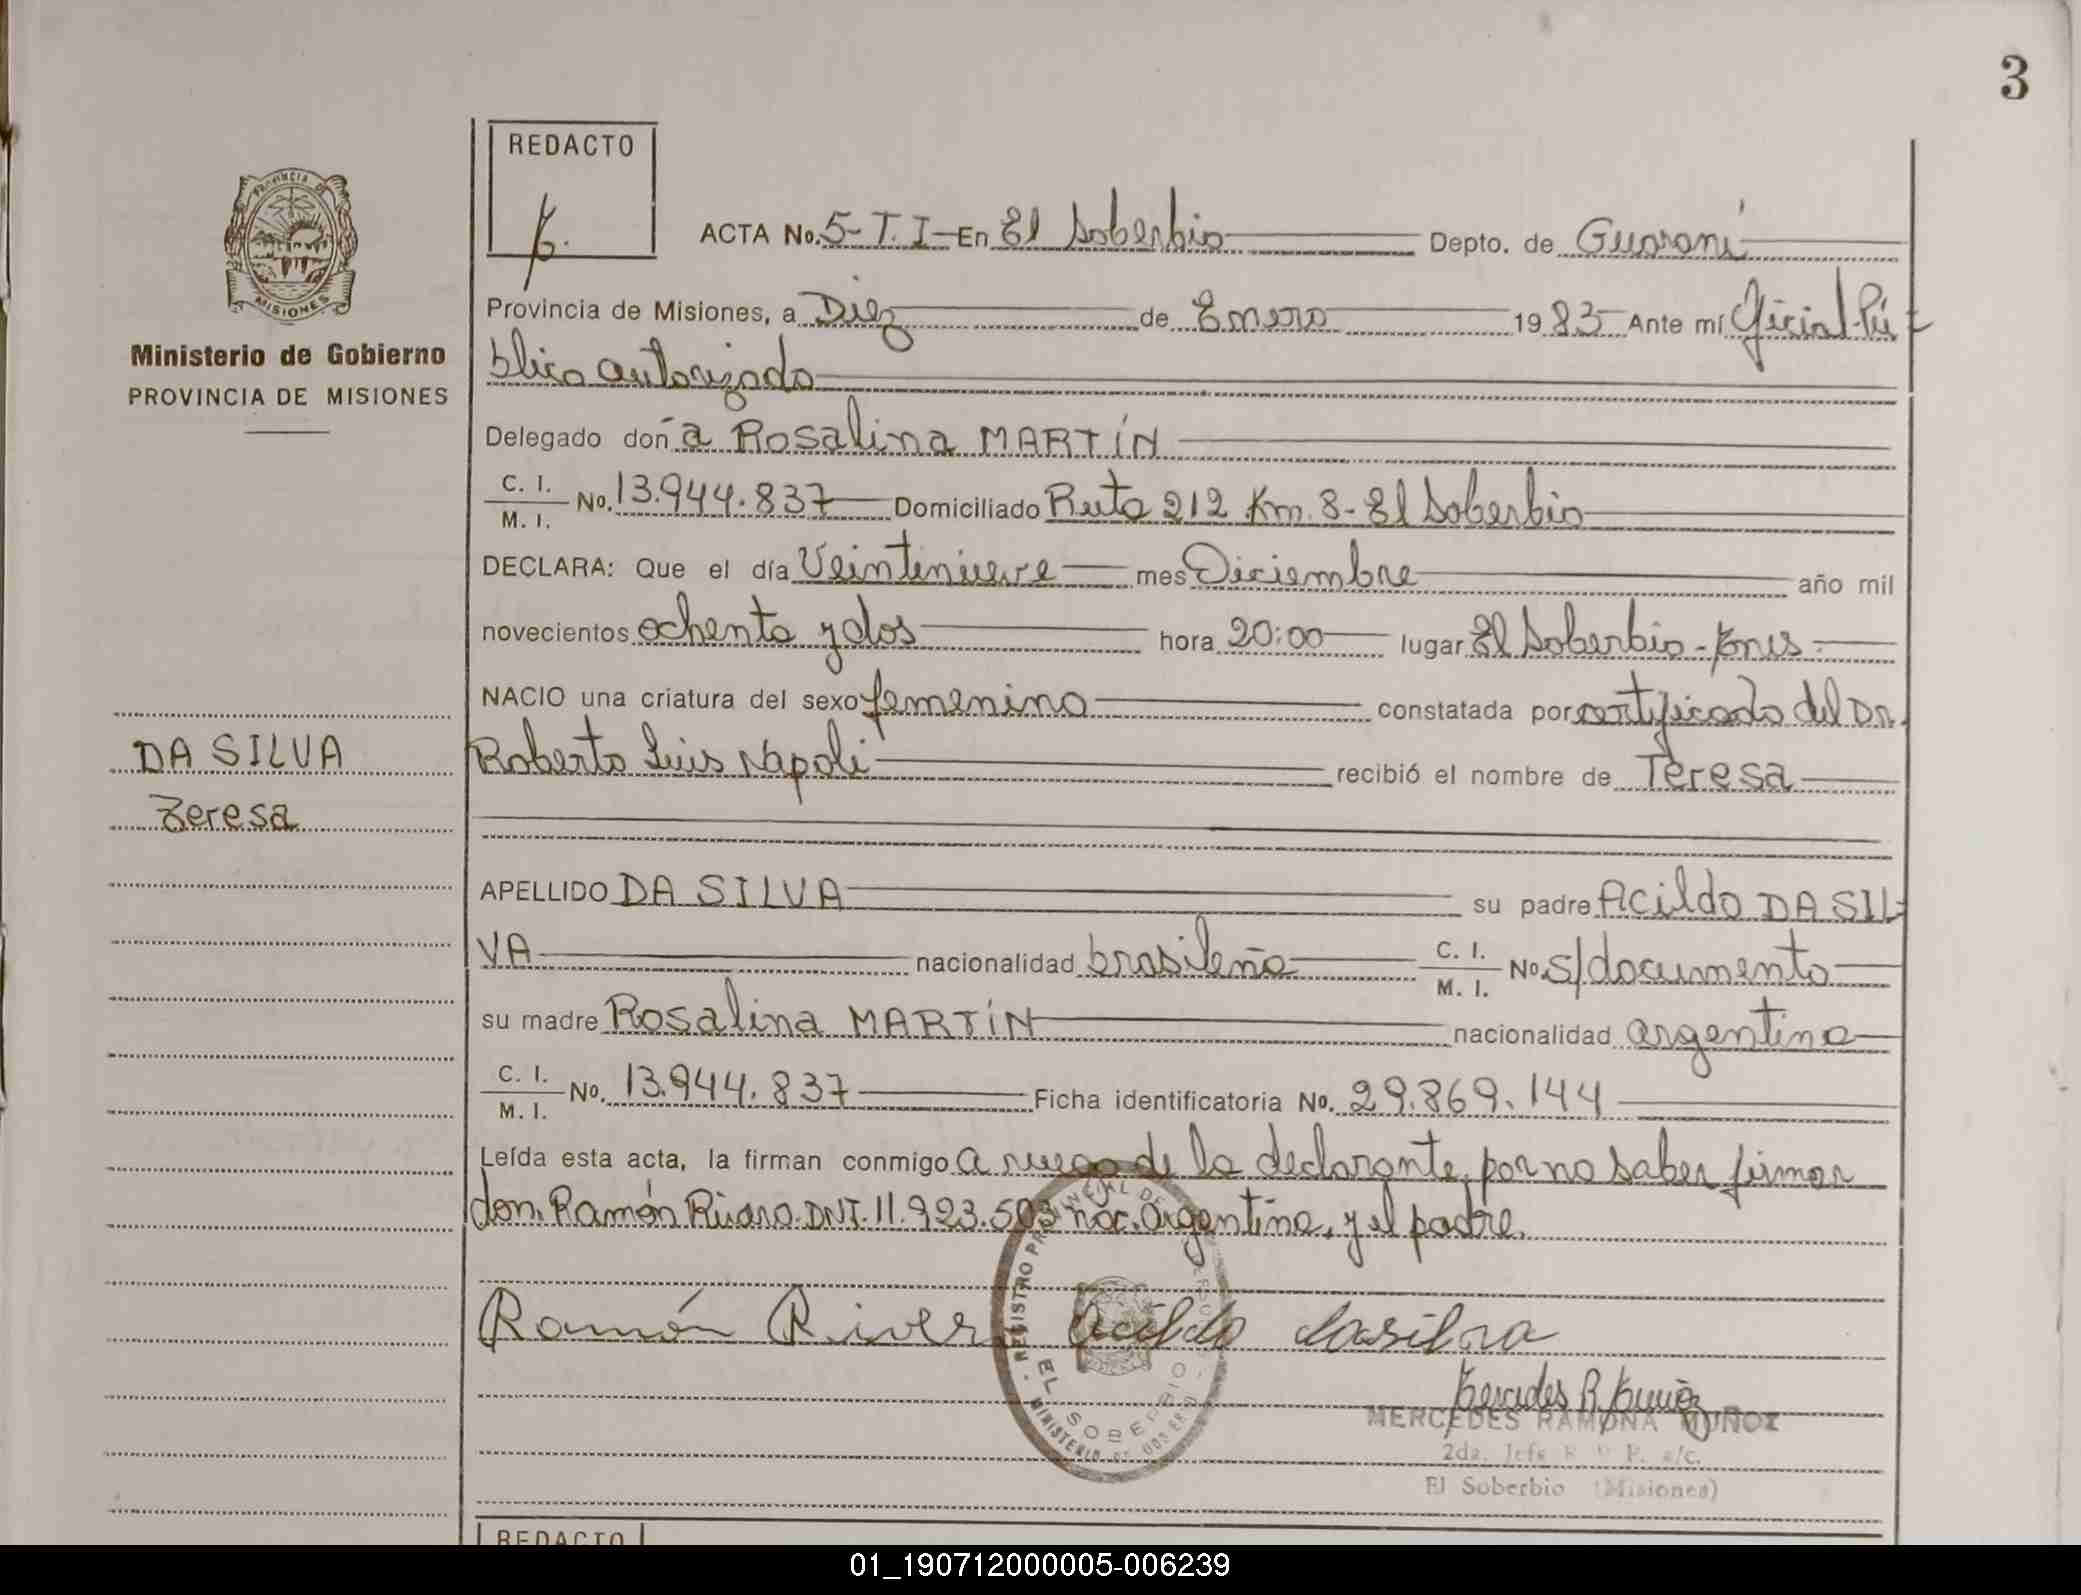 3
REDACTO
ACTA No. 5-T.I-En El Soberbio Depto. de Guaraní
Provincia de Misiones, a Diez de Enero 1983 Ante mí Oficial Pú
blico autorizado
Ministerio de Gobierno
PROVINCIA DE MISIONES
Delegado don a Rosalina MARTÍN
C. I.
M. I. No. 13.944.837 Domiciliado Ruta 212 Km. 8-El Soberbio
DECLARA: Que el día Veintenueve mes Diciembre año mil
novecientos ochenta y dos hora 20:00 lugar El Soberbio-Mnes
NACIO una criatura del sexo femenino constatada por certificado del Dr.
Roberto Luis Napoli recibió el nombre de Teresa
DA SILVA
Teresa
APELLIDO DA SILVA su padre Acildo DA SIL-
VA nacionalidad brasileña C. I.
M. I. No. s/documento
su madre Rosalina MARTÍN nacionalidad argentina
C. I.
M. I. No. 13.944.837 Ficha identificatoria No. 29.869.144
Leída esta acta, la firman conmigo a ruego de la declarante, por no saber firmar
don. Ramón Rivero. DNI. 11.923.503 nac. argentina, y el padre.
Ramón River Acildo dasilva
Mercedes R. Muñoz
MERCEDES RAMONA MUÑOZ
2da. Jefe R. P. a/c.
El Soberbio (Misiones)
REGISTRO PROVINCIAL DE
EL SOBERBIO
MINISTERIO DE GOBIERNO
REDACTO
01_190712000005-006239